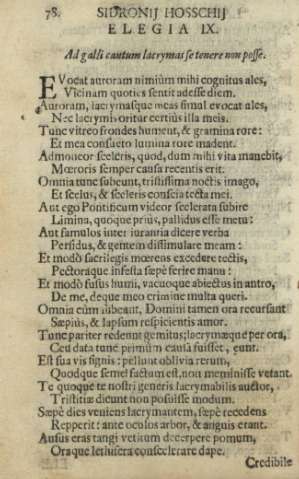 78. SIDRONII HOSSCHII
ELEGIA IX.
Ad galli cantum lacrymas se tenere non posse.
EVocat auroram nimiùm mihi cognitus ales,
Vicinam quoties sentit adesse diem.
Auroram, lacrymasque meas simul evocat ales,
Nec lacrymis oritur certiùs illa meis.
Tunc vitreo frondes hument, & gramina rore:
Et mea consueto lumina rore madent.
Admoneor sceleris, quod, dum mihi vita manebit,
Mœroris semper causa recentis erit.
Omnia tunc subeunt, tristissima noctis imago,
Et scelus, & sceleris conscia tecta mei.
Aut ego Pontificum videor scelerata subire
Limina, quoque priùs, pallidus esse metu:
Aut famulos inter iurantia dicere verba
Perfidus, & gentem dissimulare meam:
Et modò sacrilegis mœrens excedere tectis,
Pectoraque infesta sæpè ferire manu:
Et modò fusus humi, vacuoque abiectus in antro,
De me, deque meo crimine multa queri.
Omnia cùm subeant, Domini tamen ora recursant
Sæpiùs, & lapsum respicientis amor.
Tunc pariter redeunt gemitus; lacrymæque per ora,
Ceu data tunc primùm causa fuisset, eunt.
Est sua vis signis: pellunt oblivia rerum,
Quodque semel factum est, non meminisse vetant.
Te quoque te nostri generis lacrymabilis auctor,
Tristitiæ dicunt non posuisse modum.
Sæpè dies veniens lacrymantem, sæpè recedens
Repperit: ante oculos arbor, & anguis erant.
Ausus eras tangi vetitum decerpere pomum,
Oraque conscelerare dape.
Credibile